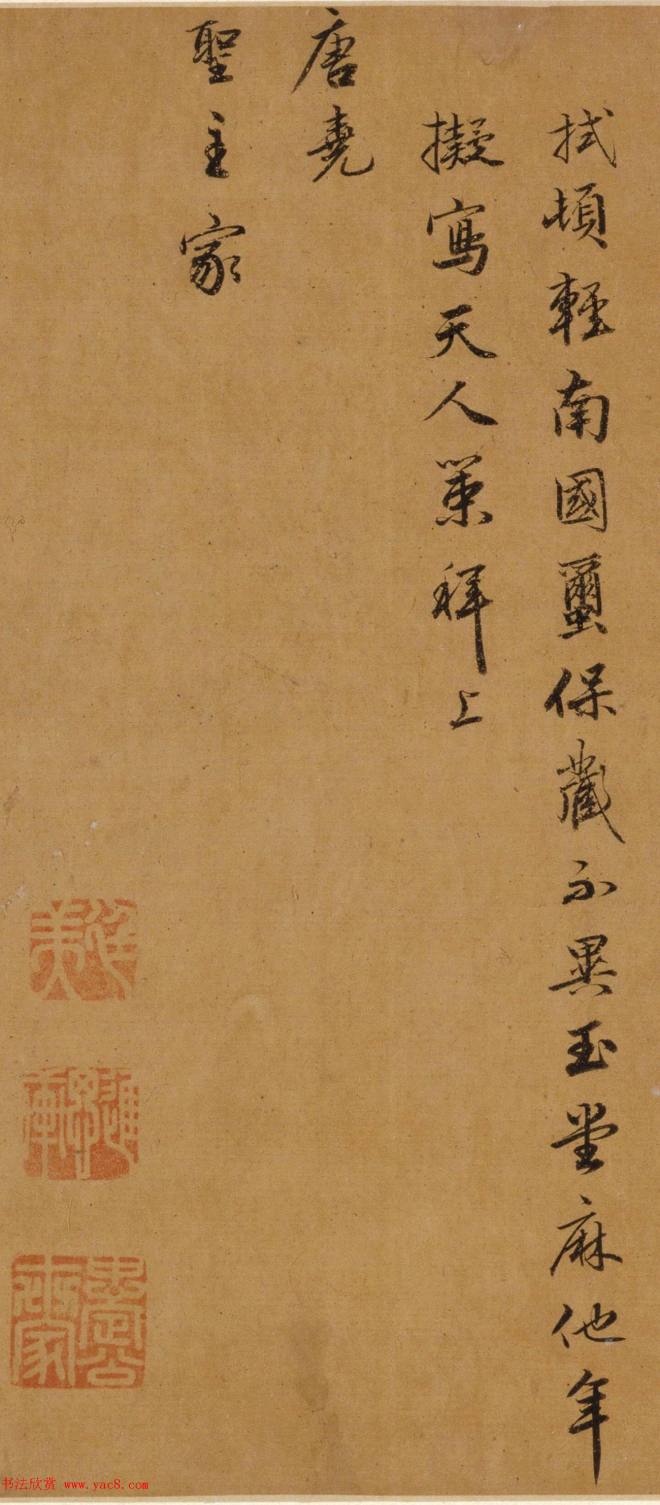 拭頓輕南國蠒保藏不異玉堂麻他年
擬寫天人策拜上
唐堯
聖主家
书法欣赏 www.yac8.com